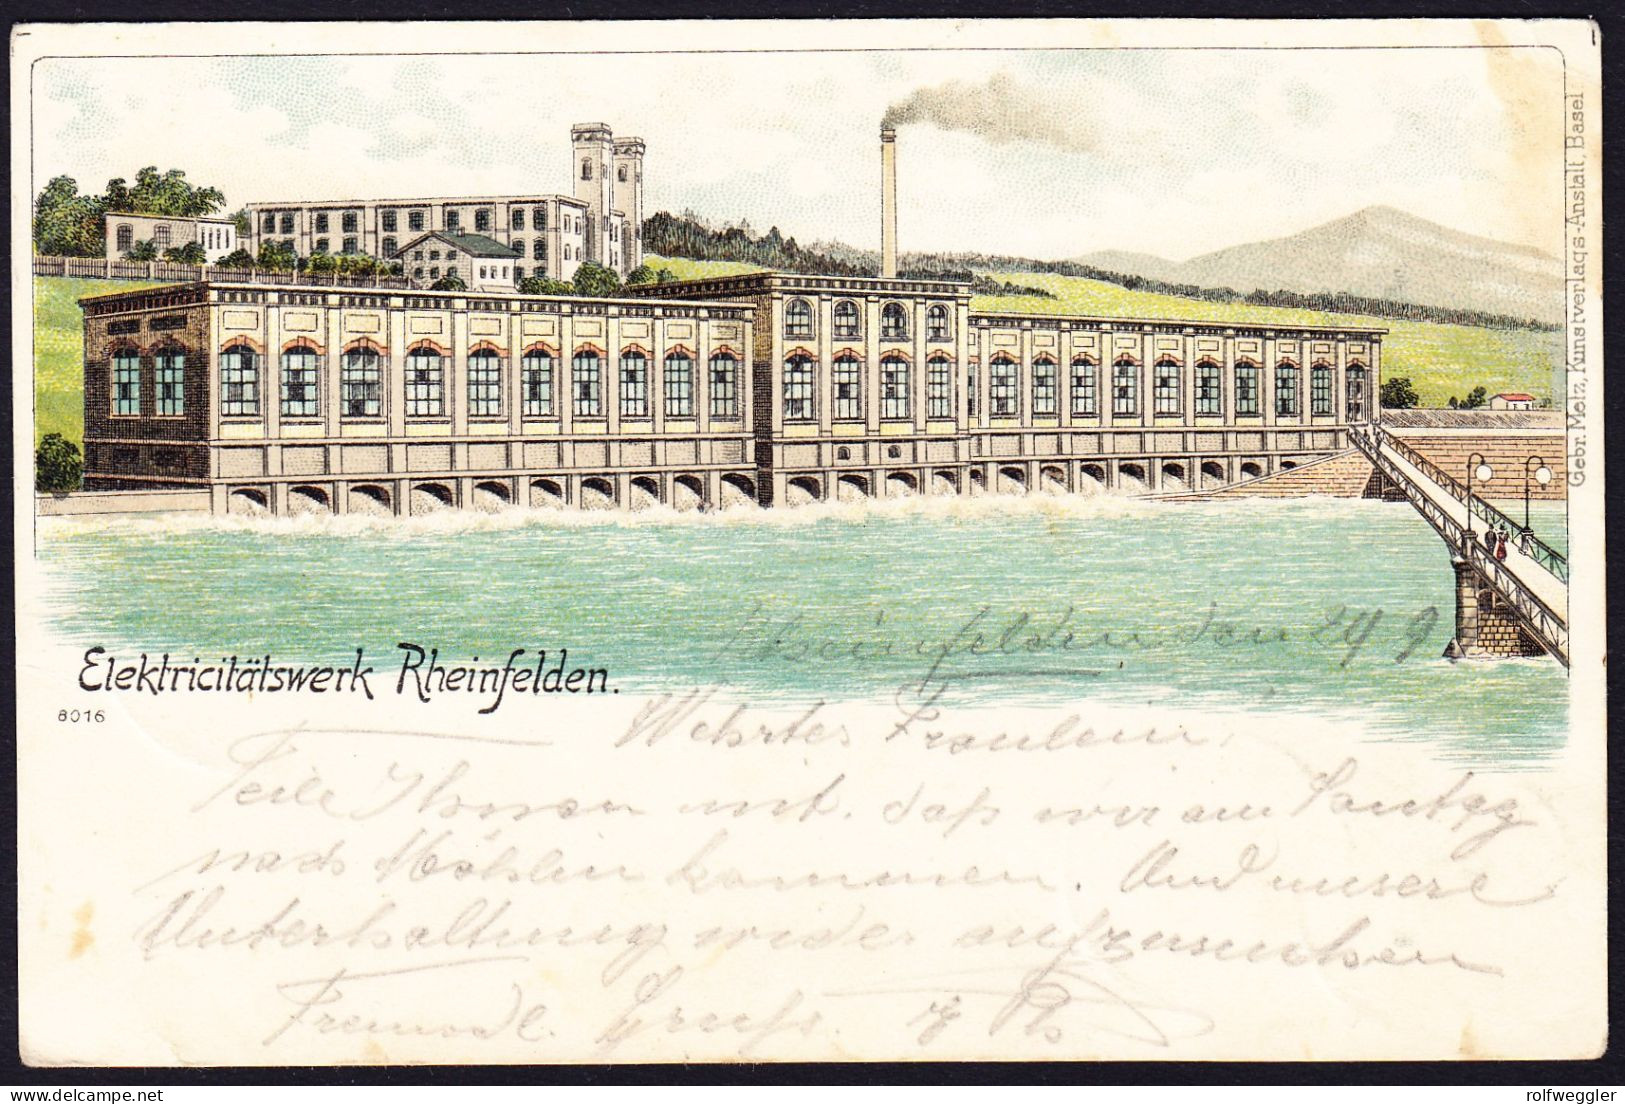 Gebr. Metz, Kunstverlags-Anstalt, Basel
Elektricitätswerk Rheinfelden.
8016
Rheinfelden den 24 9
Wehrtes Fräulein
Teile Ihnen mit. daß wir am Sontag
nach Möhlin kommen. Und unsere
Unterhaltung wider aufzusuchen
Freundl. Gruß.
delcampe.net
rolfweggler